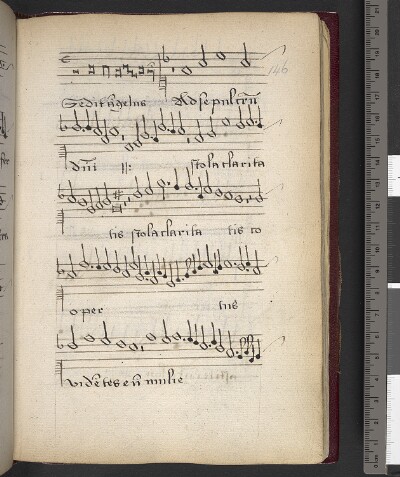 146
Sedit āgelus Ad sepulcrū
dn̄i :||: stola clarita
tis stola clarita tis co
oper tus
vidētes eū mulie